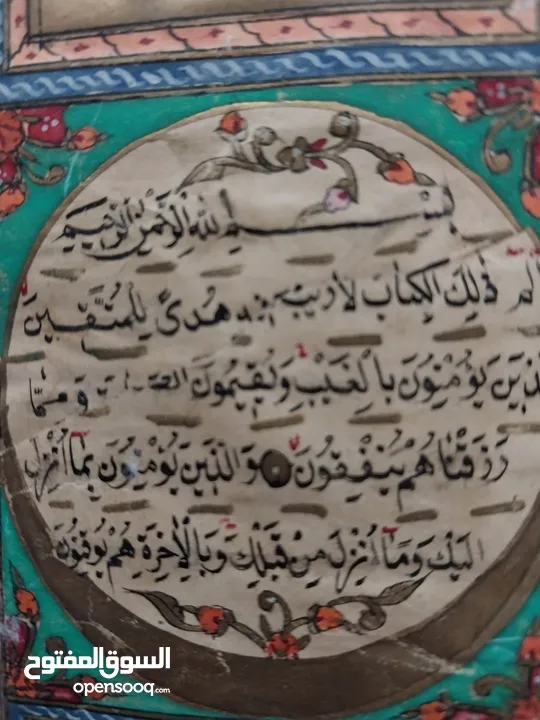 بِسْمِ اللهِ الرَّحْمٰنِ الرَّحِيمِ
الم ذٰلِكَ الْكِتَابُ لَارَيْبَ فِيهِ هُدًى لِلْمُتَّقِينَ
الَّذِينَ يُؤْمِنُونَ بِالْغَيْبِ وَيُقِيمُونَ الصلوة وَمِمَّا
رَزَقْنَاهُمْ يُنْفِقُونَ وَالَّذِينَ يُؤْمِنُونَ بِمَا أُنْزِلَ
اِلَيْكَ وَمَا أُنْزِلَ مِنْ قَبْلِكَ وَبِالْاٰخِرَةِ هُمْ يُوقِنُونَ
السوق المفتوح
opensooq.com